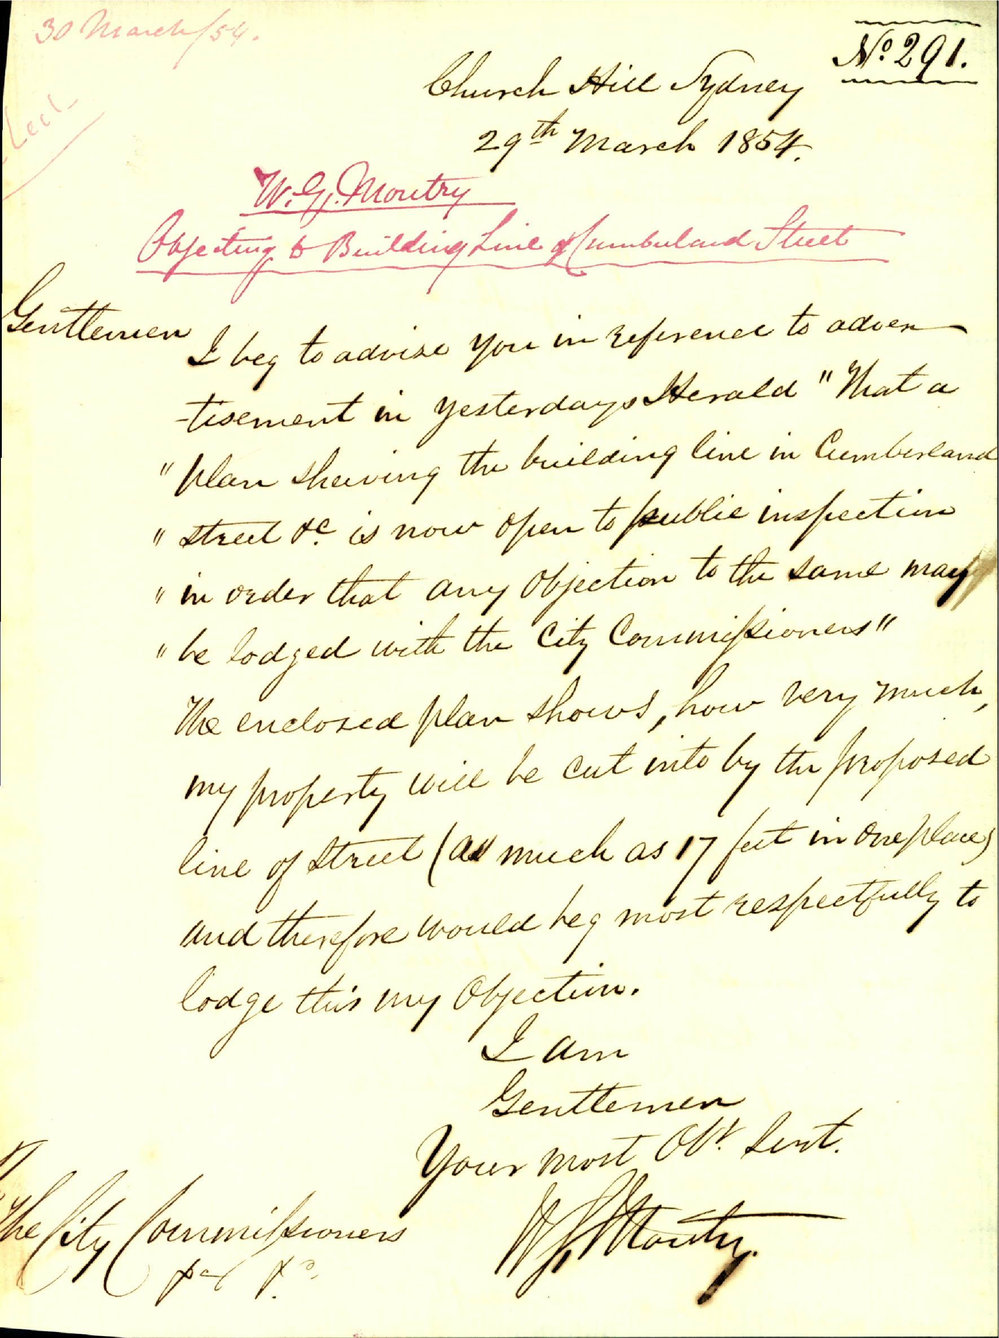 30 March/54.
No. 291.
Church Hill Sydney
29th March 1854.
Recd.
W. G. Moutry
Objecting to Building Line of Cumberland Street
Gentlemen
I beg to advise you in reference to adver
-tisement in yesterdays Herald "That a
"plan shewing the building line in Cumberland
"street &c. is now open to public inspection
"in order that any Objection to the same may
"be lodged with the City Commissioners"
The enclosed plan shows, how very much,
my property will be cut into by the proposed
line of Street (as much as 17 feet in one place)
and therefore would beg most respectfully to
lodge this my Objection.
I am
Gentlemen
Your most Obt. Sert.
W G Moutry.
The City Commissioners
&c &c.